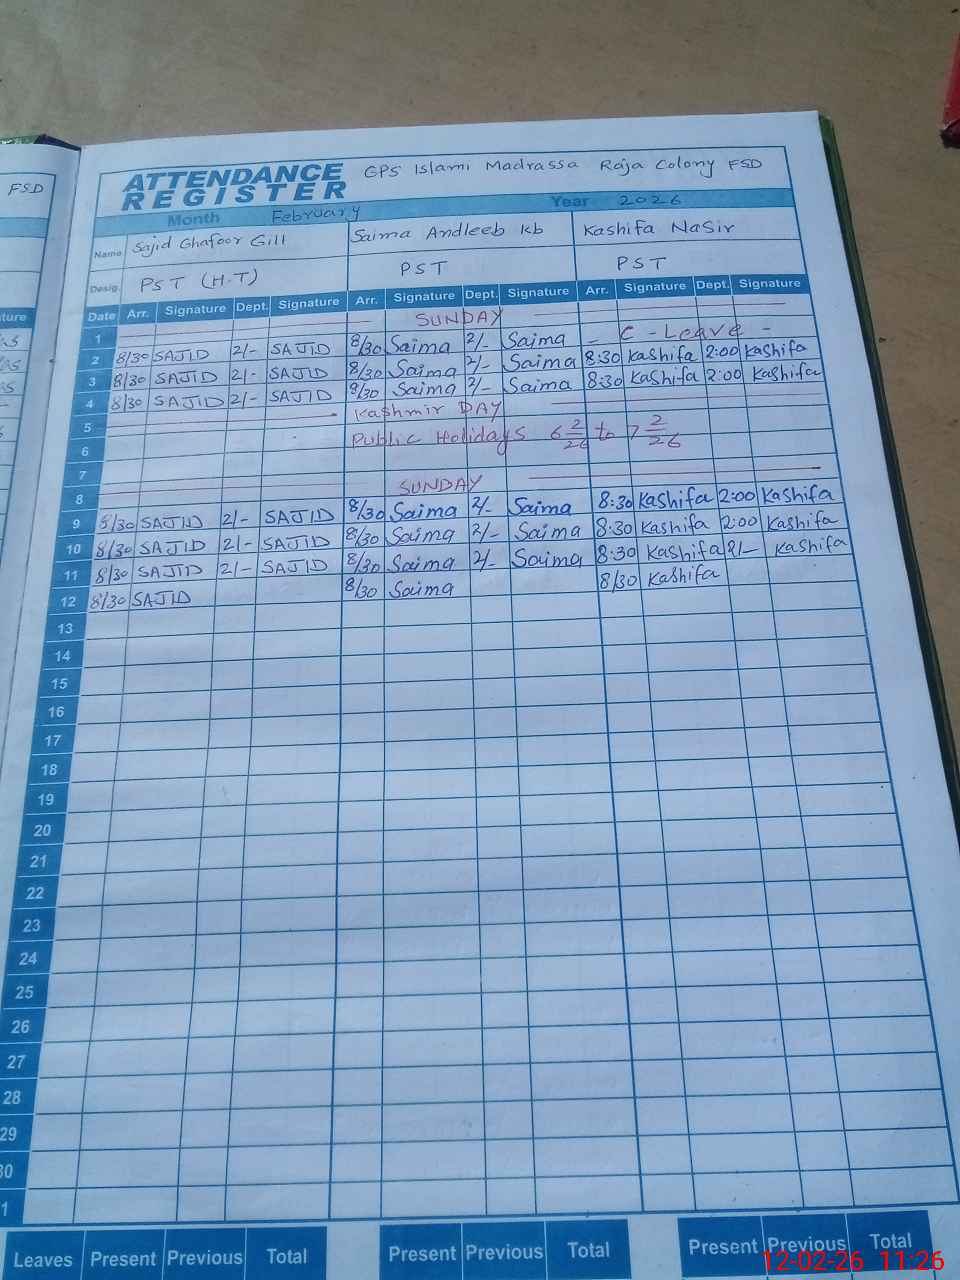 FSD
ATTENDANCE REGISTER GPS Islami Madrassa Raja Colony FSD
Month February Year 2026
Name Sajid Ghafoor Gill Saima Andleeb kb Kashifa Nasir
Desig. PST (H.T) PST PST
Date Arr. Signature Dept. Signature Arr. Signature Dept. Signature Arr. Signature Dept. Signature
1 SUNDAY
2 8/30 SAJID 2/- SAJID 8/30 Saima 2/- Saima - C - Leave -
3 8/30 SAJID 2/- SAJID 8/30 Saima 2/- Saima 8:30 Kashifa 2:00 Kashifa
4 8/30 SAJID 2/- SAJID 8/30 Saima 2/- Saima 8:30 Kashifa 2:00 Kashifa
5 Kashmir DAY
6 Public Holidays 6 2/26 to 7 2/26
7
8 SUNDAY
9 8/30 SAJID 2/- SAJID 8/30 Saima 2/- Saima 8:30 Kashifa 2:00 Kashifa
10 8/30 SAJID 2/- SAJID 8/30 Saima 2/- Saima 8:30 Kashifa 2:00 Kashifa
11 8/30 SAJID 2/- SAJID 8/30 Saima 2/- Saima 8:30 Kashifa 2/- Kashifa
12 8/30 SAJID 8/30 Saima 8/30 Kashifa
13
14
15
16
17
18
19
20
21
22
23
24
25
26
27
28
29
30
1
Leaves Present Previous Total Present Previous Total Present Previous Total
12-02-26 11:26